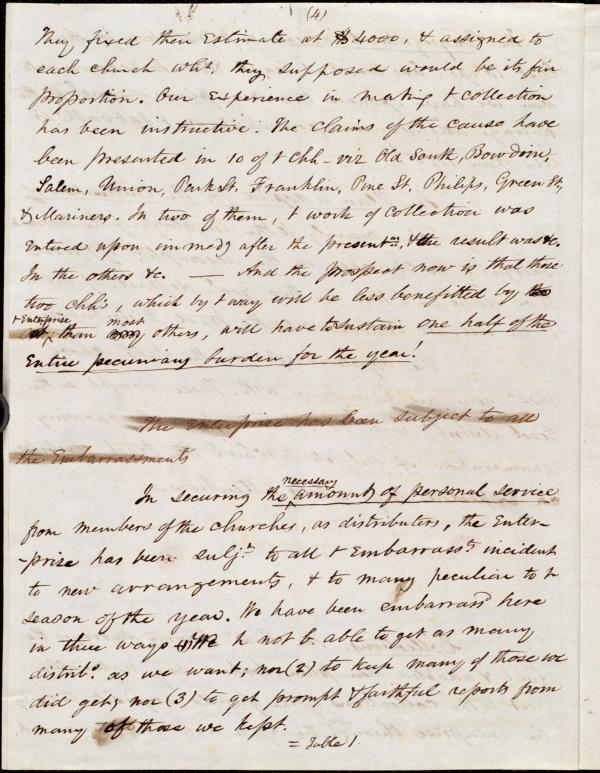 (4)
They fixed their Estimate at $4000, & assigned to
each church wht. they supposed would be its fair
proportion. Our Experience in making t collection
has been instructive. The claims of the cause have
been presented in 10 of t chh - viz Old South, Bowdoin,
Salem, Union, Park St, Franklin, Pine St, Philips, Green St,
& Mariners. In two of them, t work of collection was
Entered upon immedy after the presentan, & the result was &c.
In the others &c. — And the prospect now is that those
two chhs, which by t way will be less benefitted by
t Enterprise than most others, will have to sustain one half of the
Entire pecuniary burden for the year!
The enterprise has been subject to all
the Embarrassments
In securing the necessary amount of personal service
from members of the churches, as distributers, the Enter-
-prise has been subjt. to all t Embarrassts. incident
to new arrangements, & to many peculiar to t
season of the year. We have been embarrassd here
in three ways We h not b. able to get as many
distribs. as we want; nor (2) to keep many of those we
did get; nor (3) to get prompt & faithful reports from
many of those we kept.
= Table 1.